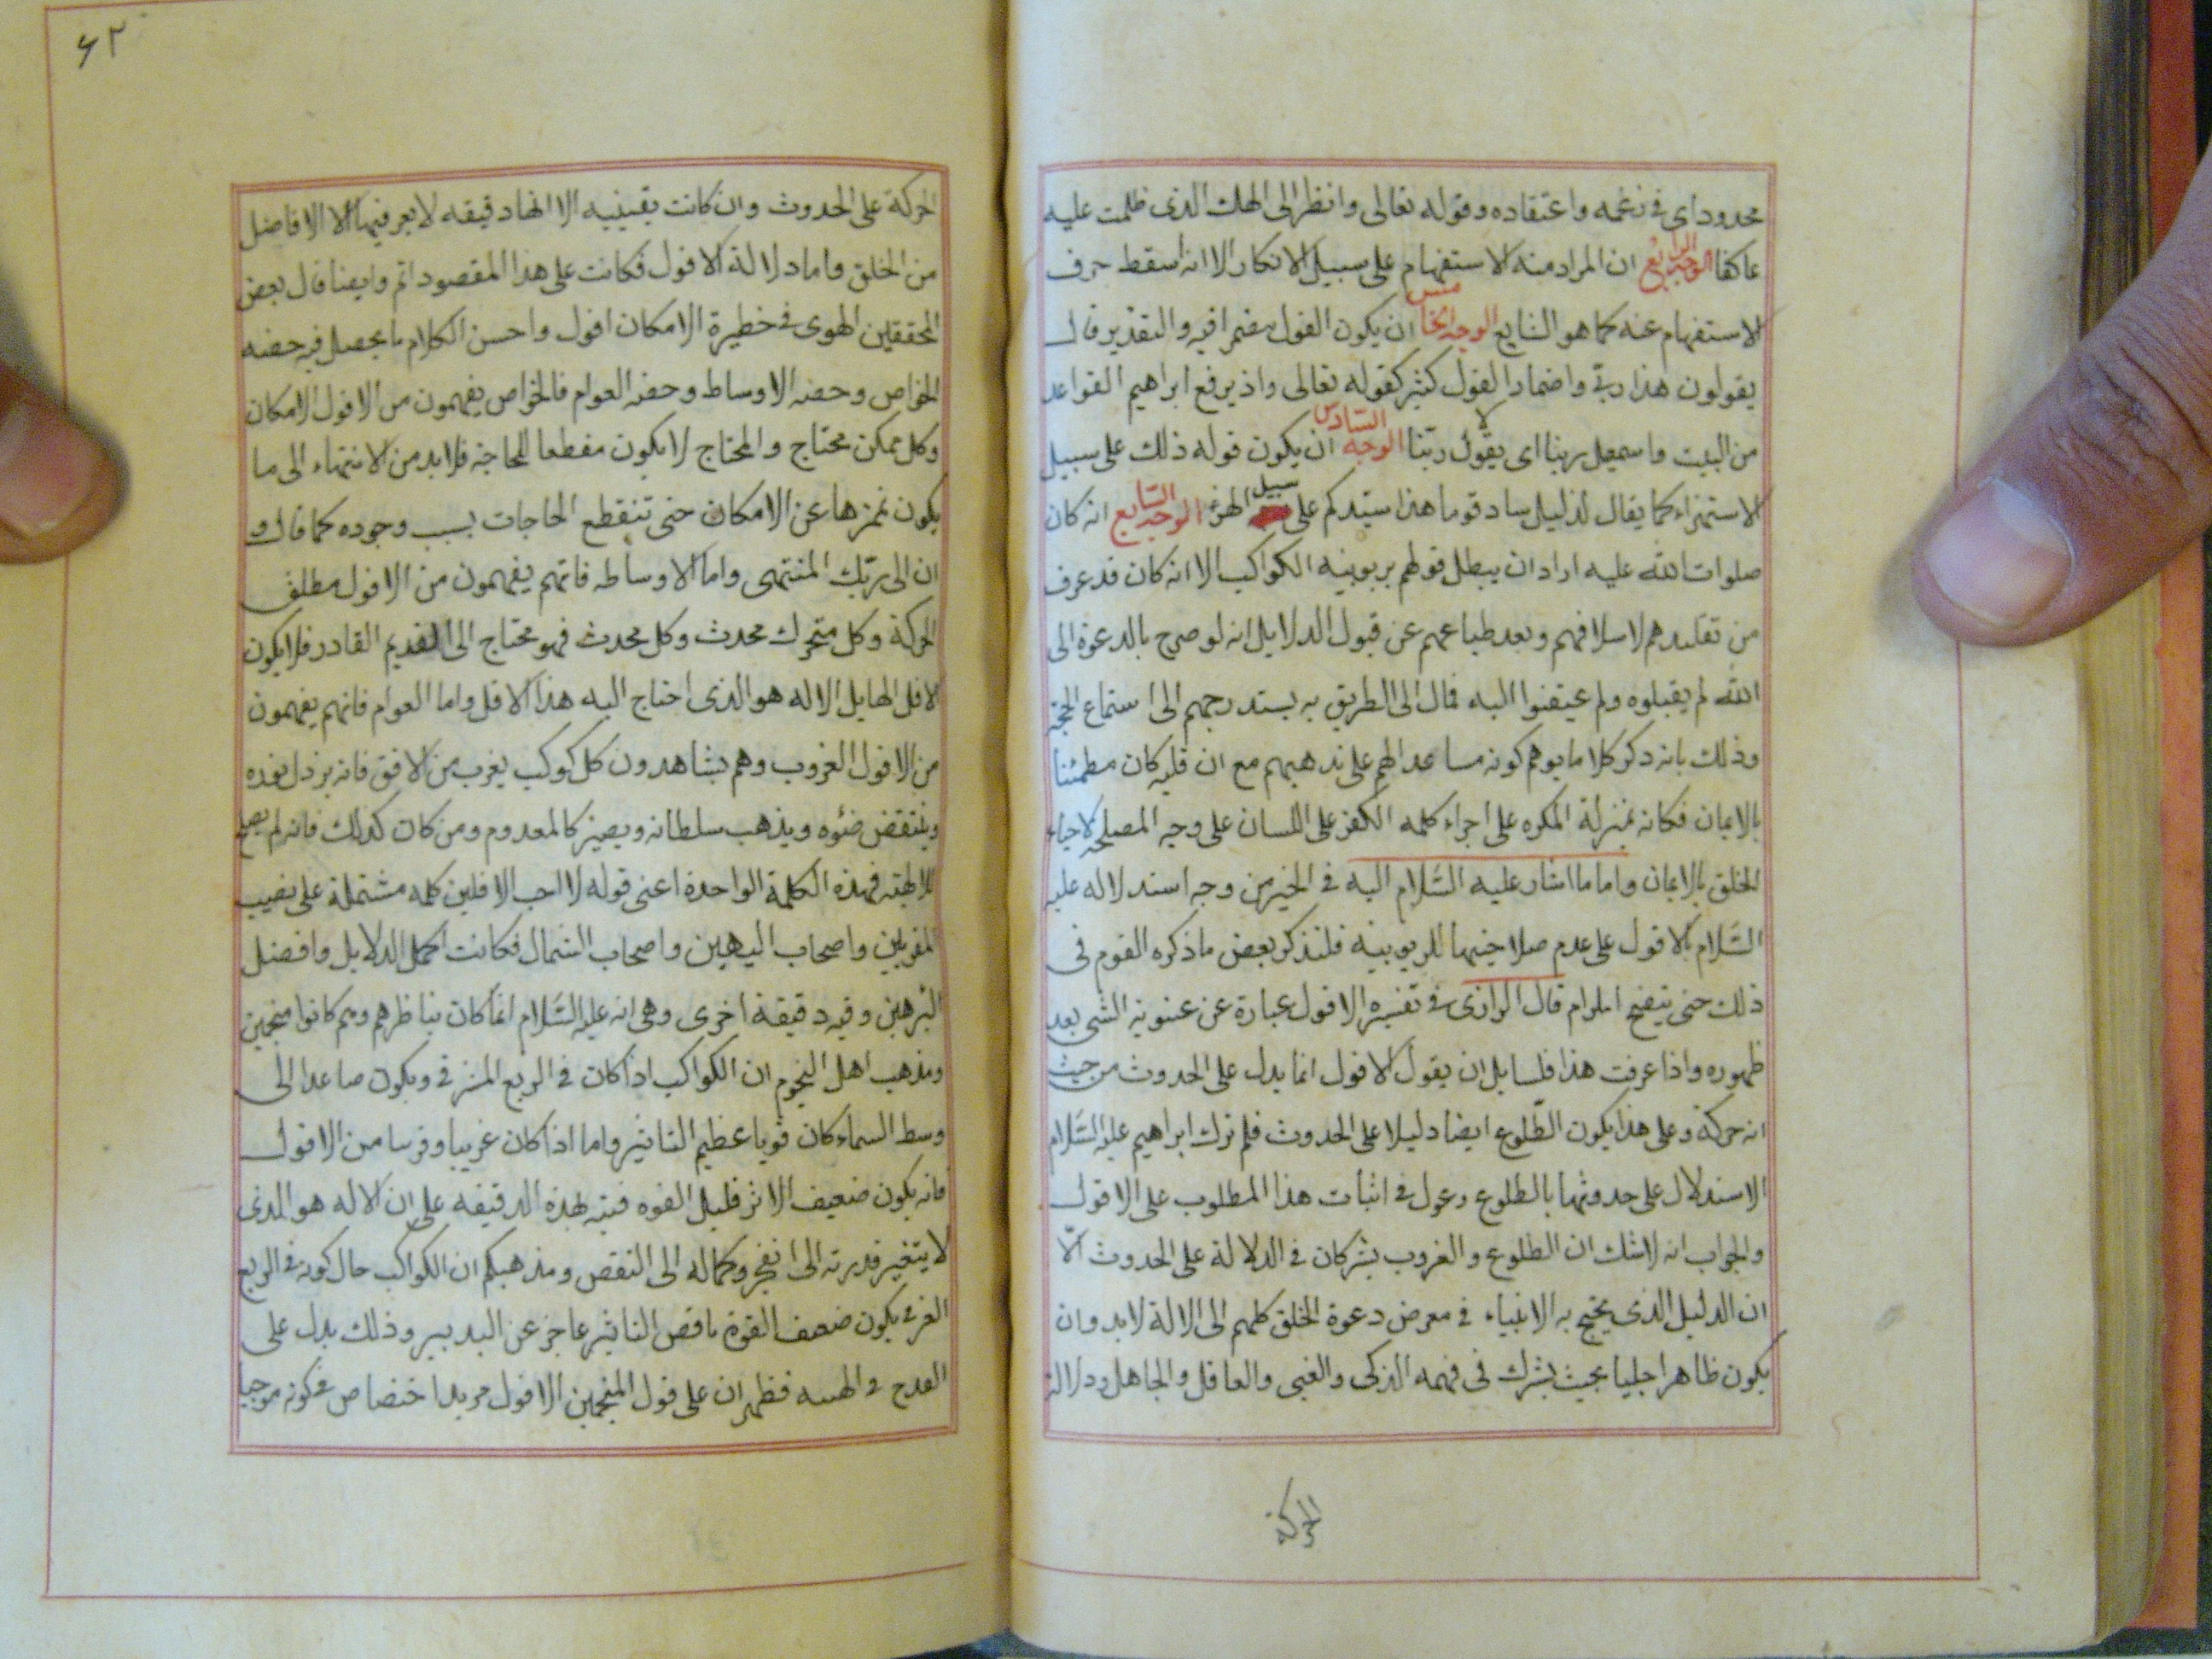 محدودا اى فى زعمه واعتقاده وقوله تعالى وانظر الى الهك الذى ظلت عليه
عاكفا الوجه الرابع ان المراد منه الاستفهام على سبيل الانكار الا انه اسقط حرف
الاستفهام عنه كما هو الشايع الوجه الخامس ان يكون القول مضمرا فيه والتقدير قال
يقولون هذا ربى واضمار القول كثير كقوله تعالى واذ يرفع ابراهيم القواعد
من البيت واسمعيل ربنا اى يقولا ربنا الوجه السادس ان يكون قوله ذلك على سبيل
الاستهزاء كما يقال لذليل ساد قوما هذا سيدكم على سبيل الهزء الوجه السابع انه كان
صلوات الله عليه اراد ان يبطل قولهم بربوبيه الكواكب الا انه كان قد عرف
من تقليدهم لاسلافهم وبعد طباعهم عن قبول الدلايل انه لو صرح بالدعوة الى
الله لم يقبلوه ولم يلتفتوا اليه فمال الى الطريق به يستدرجهم الى استماع الحجة
وذلك بانه ذكر كلاما يوهم كونه مساعدا لهم على مذهبهم مع ان قلبه كان مطمئنا
بالايمان فكانه بمنزلة المكره على اجراء كلمه الكفر على اللسان على وجه المصلحة لاحياء
الخلق بالايمان واما ما اشار عليه السَّلام اليه فى الخبر من وجه استدلاله عليه
السَّلام بالافول على عدم صلاحيتها للربوبيه فلنذكر بعض ما ذكره القوم فى
ذلك حتى يتضح المرام قال الرازى فى تفسيره الافول عبارة عن غيبوبة الشى بعد
ظهوره واذا عرفت هذا فلسايل ان يقول الافول انما يدل على الحدوث من حيث
انه حركة وعلى هذا يكون الطلوع ايضا دليلا على الحدوث فلم ترك ابراهيم عليه السَّلام
الاستدلال على حدوثها بالطلوع وعول فى اثبات هذا المطلوب على الافول
والجواب انه لاشك ان الطلوع والغروب يشتركان فى الدلالة على الحدوث الّا
ان الدليل الذى يحتج به الانبياء فى معرض دعوة الخلق كلهم الى الالة لابد وان
يكون ظاهرا جليا بحيث يشترك فى فهمه الذكى والغبى والعاقل والجاهل ودلالة
الحركة
۶۲
الحركة على الحدوث وان كانت يقينيه الا انها دقيقه لا يعرفها الا الافاضل
من الخلق واما دلالة الافول فكانت على هذا المقصود اتم وايضا قال بعض
المحققين الهوى فى خطيرة الامكان افول واحسن الكلام ما يحصل فيه حصه
الخواص وحصه الاوساط وحصه العوام فالخواص يفهمون من الافول الامكان
وكل ممكن محتاج والمحتاج لا يكون مقطعا للحاجة فلابد من الانتهاء الى ما
يكون منزها عن الامكان حتى تنقطع الحاجات بسبب وجوده كما قال و
ان الى ربّك المنتهى واما الاوساطه فانهم يفهمون من الافول مطلق
الحركة وكل متحرك محدث وكل محدث فهو محتاج الى القديم القادر فلا يكون
الافل الها بل الاله هو الذى احتاج اليه هذا الافل واما العوام فانهم يفهمون
من الافول الغروب وهم يشاهدون كل كوكب يغرب من الافق فانه يزول نوره
وينتقض ضوئه ويذهب سلطانه ويصير كالمعدوم ومن كان كذلك فانه لم يصلح
للالهيّة فهذه الكلمة الواحدة اعنى قوله لا احب الافلين كلمه مشتملة على نصيب
المقربين واصحاب اليمين واصحاب الشمال فكانت اكمل الدلايل وافضل
البرهين وفيه دقيقة اخرى وهى انه عليه السَّلام انما كان يناظرهم وهم كانوا منجمين
ومذهب اهل النجوم ان الكواكب اذا كان فى الربع المشرقى ويكون صاعدا الى
وسط السماء كان قويا عظيم التاثير واما اذا كان غريبا وقرسا من الافول
فانه يكون ضعيف الاثر قليل القوه فنبه بهذه الدقيقه على ان الاله هو الذى
لا يتغير قدرته الى العجز وكماله الى النقص ومذهبكم ان الكواكب حال كونه فى الربع
الغربى يكون ضعيف القوة ناقص التاثير عاجز عن التدبير وذلك يدل على
القدح فى الهيته فظهر ان على قول المنجمين الافول مريدا اختصاص فى كونه موجبا